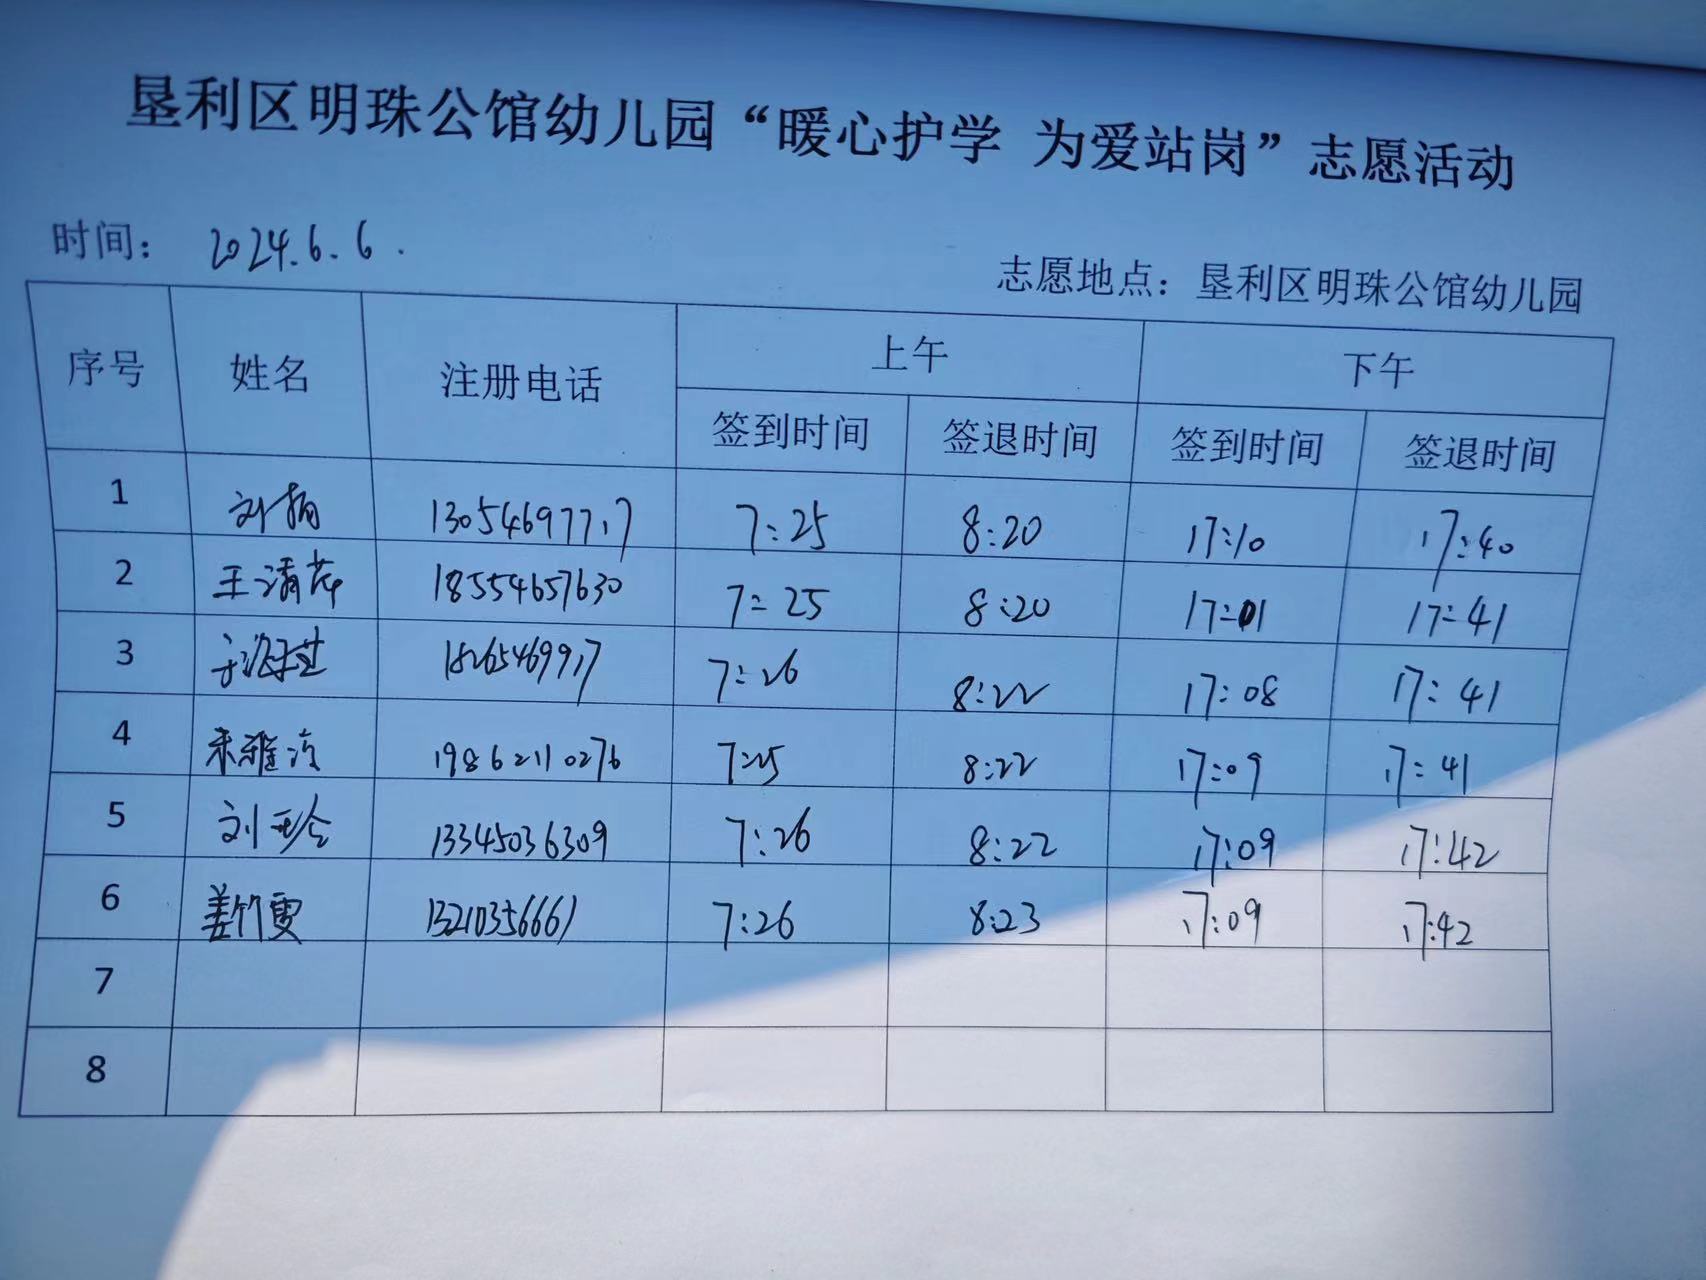 垦利区明珠公馆幼儿园“暖心护学 为爱站岗”志愿活动
时间： 2024.6.6.
志愿地点：垦利区明珠公馆幼儿园
序号 姓名 注册电话 上午 下午
签到时间 签退时间 签到时间 签退时间
1 刘 13054697717 7:25 8:20 17:10 17:40
2 王清 18554657630 7:25 8:20 17:01 17:41
3 18265469917 7:26 8:22 17:08 17:41
4 雅 19862110276 7:25 8:22 17:09 17:41
5 刘珍 13345036309 7:26 8:22 17:09 17:42
6 姜竹雯 13210356661 7:26 8:23 17:09 17:42
7
8